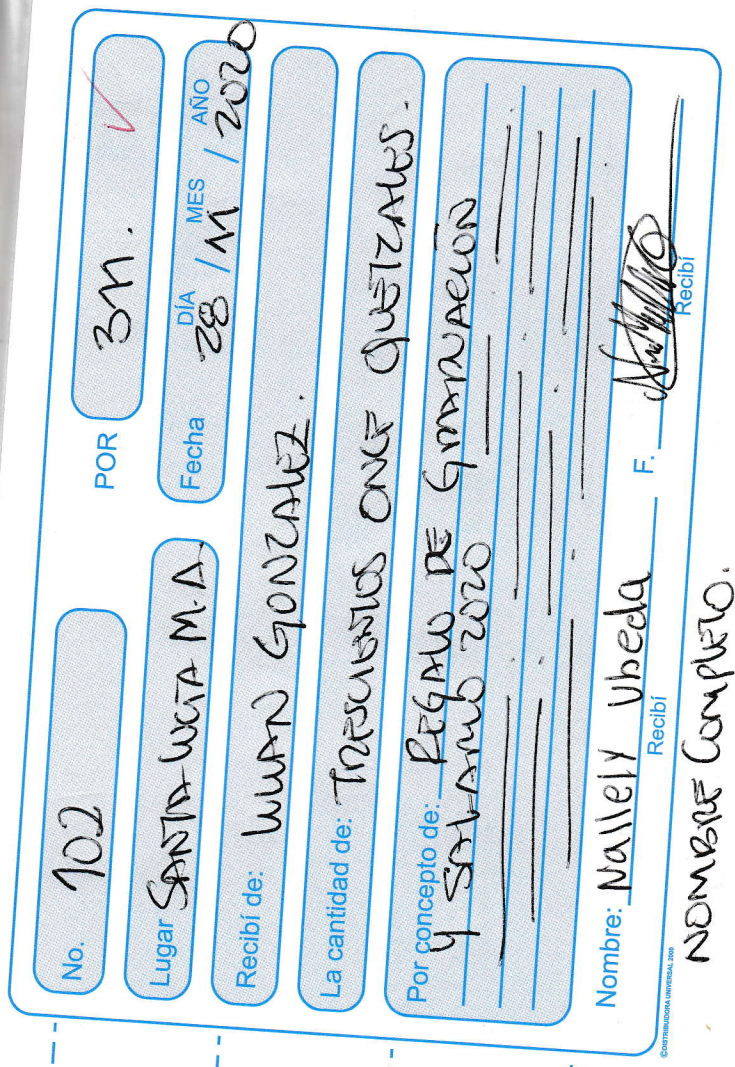 No. 102
POR 311.
Lugar SANTA LUCIA M.A.
Fecha DÍA MES AÑO
28 / 11 / 2020
Recibí de: LILIAN GONZALEZ.
La cantidad de: TRESCIENTOS ONCE QUETZALES.
Por concepto de: REGALO DE GRADUACIÓN
Y SALARIO 2020
Nombre: Nallely Ubeda F.
Recibí Recibí
NOMBRE COMPLETO.
©DISTRIBUIDORA UNIVERSAL 2009